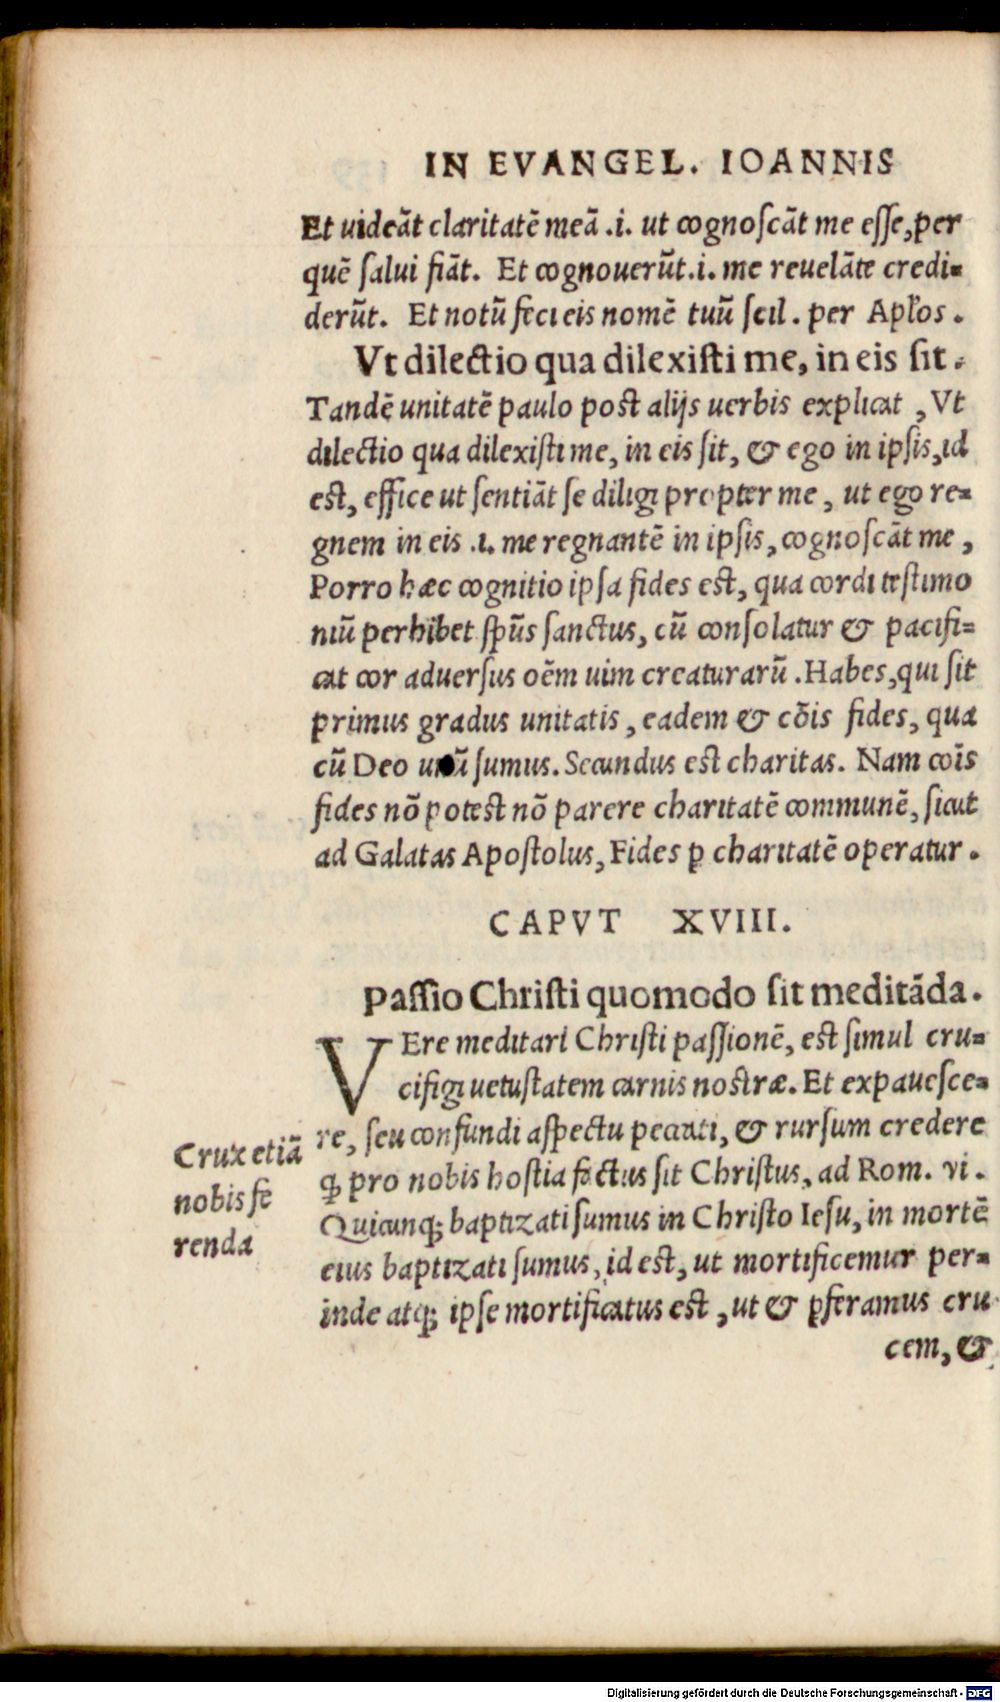 IN EVANGEL. IOANNIS
Et uideāt claritatē meā .i. ut cognoſcāt me eſſe, per
quē ſalui fiāt. Et cognouerūt .i. me reuelāte credi=
derūt. Et notū feci eis nomē tuū ſcil. per Apl'os.
Vt dilectio qua dilexiſti me, in eis ſit.
Tandē unitatē paulo poſt alijs uerbis explicat, Vt
dilectio qua dilexiſti me, in eis ſit, & ego in ipſis, id
eſt, effice ut ſentiāt ſe diligi propter me, ut ego re=
gnem in eis .i. me regnantē in ipſis, cognoſcāt me,
Porro hæc cognitio ipſa fides eſt, qua cordi teſtimo
niū perhibet ſpūs ſanctus, cū conſolatur & pacifi=
cat cor aduerſus oēm uim creaturarū. Habes, qui ſit
primus gradus unitatis, eadem & cōis fides, qua
cū Deo unū ſumus. Secundus eſt charitas. Nam coīs
fides nō poteſt nō parere charitatē communē, ſicut
ad Galatas Apoſtolus, Fides ꝑ charitatē operatur.
CAPVT XVIII.
Paſſio Christi quomodo ſit meditāda.
VEre meditari Chriſti paſſionē, eſt ſimul cru=
cifigi uetuſtatem carnis noſtræ. Et expaueſce=
re, ſeu confundi aſpectu peccati, & rurſum credere
ꝙ pro nobis hoſtia factus ſit Chriſtus, ad Rom. vi.
Quicunqꝫ baptizati ſumus in Chriſto Ieſu, in mortē
eius baptizati ſumus, id eſt, ut mortificemur per=
inde atqꝫ ipſe mortificatus eſt, ut & ꝑferamus cru
cem, &
Crux etiā
nobis fe
renda
Digitalisierung gefördert durch die Deutsche Forschungsgemeinschaft - DFG